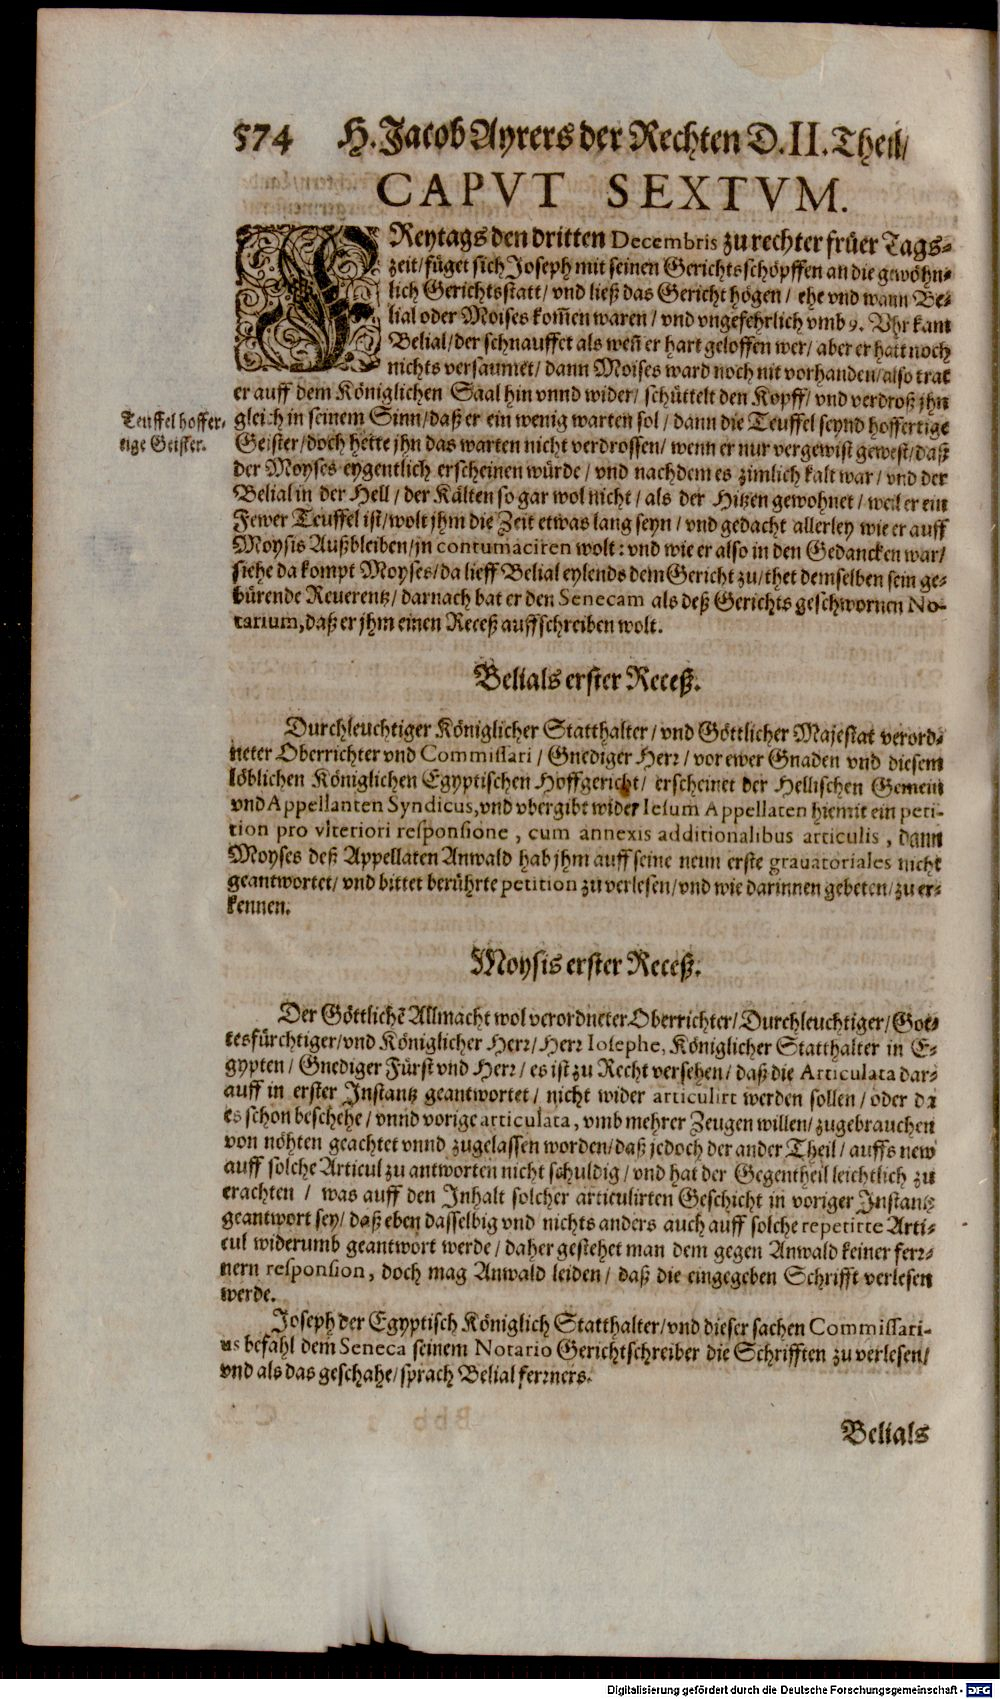 574 H. Jacob Ayrers der Rechten D. II. Theil/
CAPVT SEXTVM.
FReytags den dritten Decembris zu rechter früer Tags-
zeit/ füget sich Joseph mit seinen Gerichtsschöpffen an die gewöhn-
lich Gerichtsstatt/ vnd ließ das Gericht högen/ ehe vnd wann Be-
lial oder Moises kom̃en waren/ vnd vngefehrlich vmb 9. Vhr kam
Belial/ der schnauffet als weñ er hart geloffen wer/ aber er hatt noch
nichts versaumet/ dann Moises ward noch nit vorhanden/ also trat
er auff dem Königlichen Saal hin vnnd wider/ schüttelt den Kopff/ vnd verdroß jhn
gleich in seinem Sinn/ daß er ein wenig warten sol/ dann die Teuffel seynd hoffertige
Teuffel hoffer-
tige Geister.
Geister/ doch hette jhn das warten nicht verdrossen/ wenn er nur vergewist gewest/ daß
der Moyses eygentlich erscheinen würde/ vnd nachdem es zimlich kalt war/ vnd der
Belial in der Hell/ der Kälten so gar wol nicht/ als der Hitzen gewohnet/ weil er ein
Fewer Teuffel ist/ wolt jhm die Zeit etwas lang seyn/ vnd gedacht allerley wie er auff
Moysis Außbleiben/ jn contumaciren wolt: vnd wie er also in den Gedancken war/
siehe da kompt Moyses/ da lieff Belial eylends dem Gericht zu/ thet demselben sein ge-
bürende Reuerentz/ darnach bat er den Senecam als deß Gerichts geschwornen No-
tarium, daß er jhm einen Receß auffschreiben wolt.
Belials erster Receß.
Durchleuchtiger Königlicher Statthalter/ vnd Göttlicher Majestat verord-
neter Oberrichter vnd Commissari/ Gnediger Herr/ vor ewer Gnaden vnd diesem
löblichen Königlichen Egyptischen Hoffgericht/ erscheinet der Hellischen Gemein
vnd Appellanten Syndicus, vnd vbergibt wider Iesum Appellaten hiemit ein peti-
tion pro vlteriori responsione, cum annexis additionalibus articulis, dann
Moyses deß Appellaten Anwald hab jhm auff seine neun erste grauatoriales nicht
geantwortet/ vnd bittet berührte petition zu verlesen/ vnd wie darinnen gebeten/ zu er-
kennen.
Moysis erster Receß.
Der Göttlichẽ Allmacht wol verordneter Oberrichter/ Durchleuchtiger/ Got-
tesfürchtiger/ vnd Königlicher Herr/ Herr Iosephe, Königlicher Statthalter in E-
gypten/ Gnediger Fürst vnd Herr/ es ist zu Recht versehen/ daß die Articulata dar-
auff in erster Instantz geantwortet/ nicht wider articulirt werden sollen/ oder da
es schon beschehe/ vnnd vorige articulata, vmb mehrer Zeugen willen/ zugebrauchen
von nöhten geachtet vnnd zugelassen worden/ daß jedoch der ander Theil/ auffs new
auff solche Articul zu antworten nicht schuldig/ vnd hat der Gegentheil leichtlich zu
erachten/ was auff den Inhalt solcher articulirten Geschicht in voriger Instantz
geantwort sey/ daß eben dasselbig vnd nichts anders auch auff solche repetirte Arti-
cul widerumb geantwort werde/ daher gestehet man dem gegen Anwald keiner ferr-
nern responsion, doch mag Anwald leiden/ daß die eingegeben Schrifft verlesen
werde.
Joseph der Egyptisch Königlich Statthalter/ vnd dieser sachen Commissari-
us befahl dem Seneca seinem Notario Gerichtschreiber die Schrifften zu verlesen/
vnd als das geschahe/ sprach Belial ferrners.
Belials
Digitalisierung gefördert durch die Deutsche Forschungsgemeinschaft - DFG